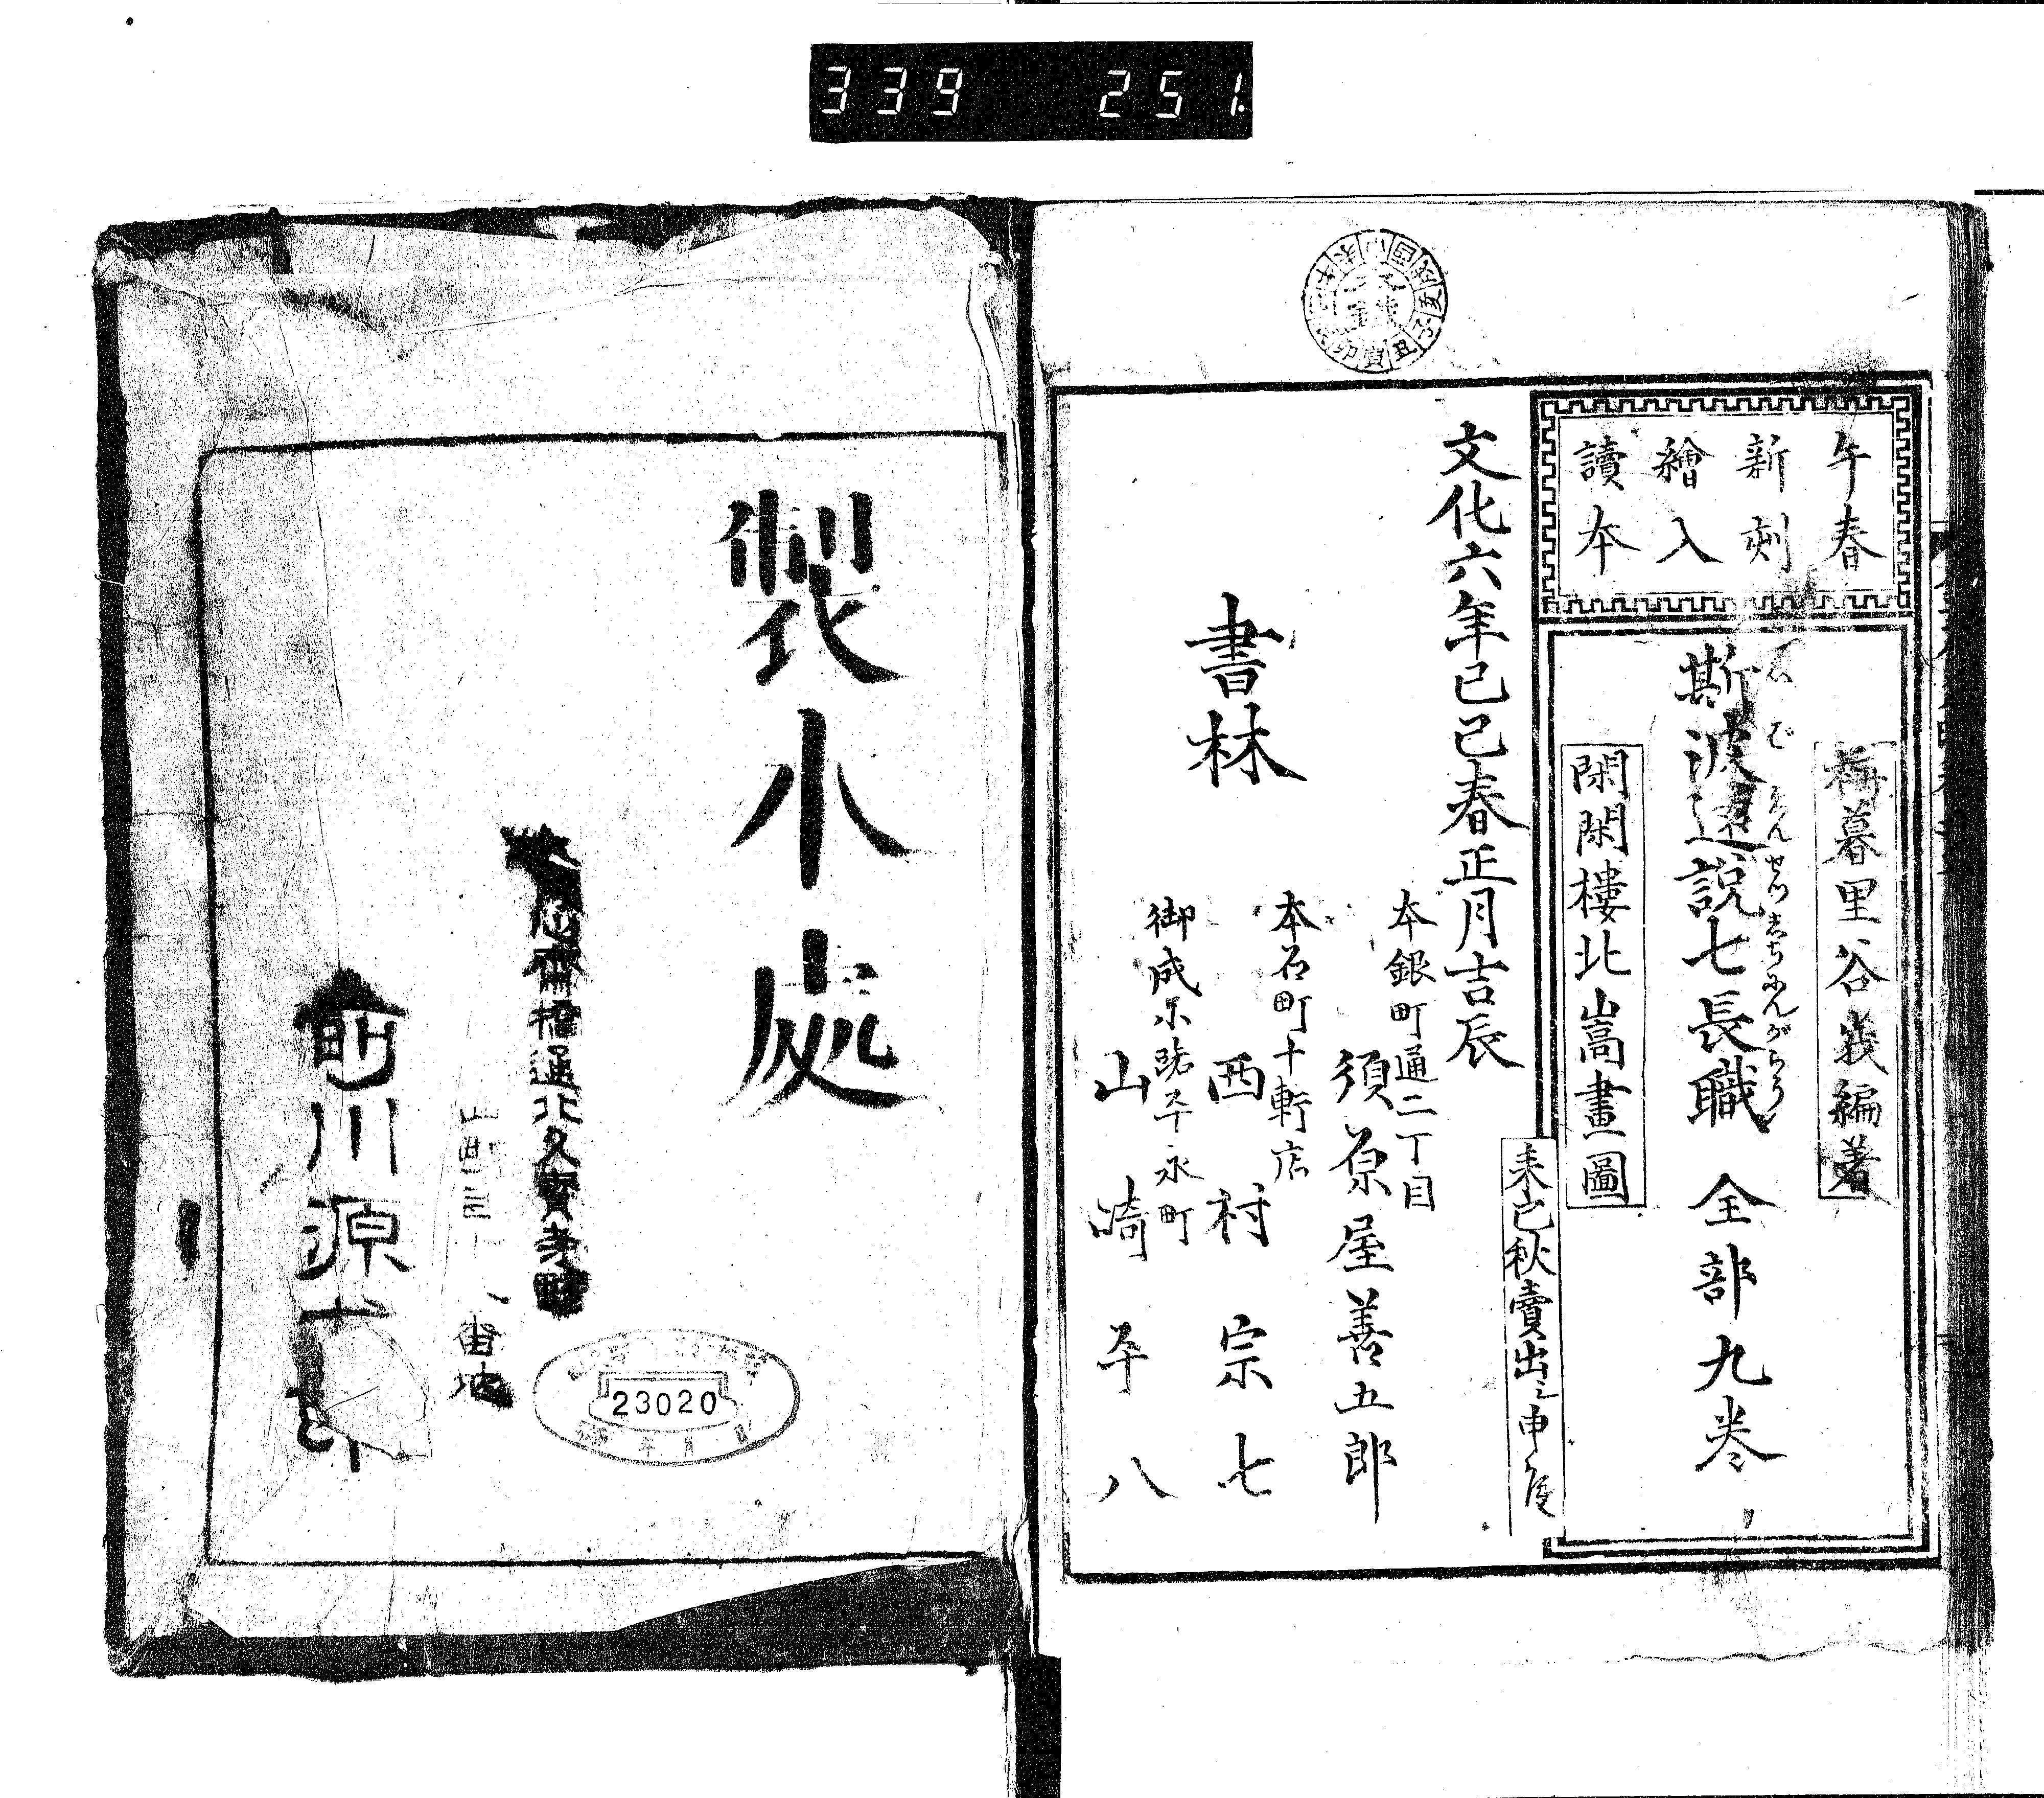 339 251
午春
新刻
繪入
讀本
梅暮里谷峩編著
斯波遠説七長職 全部九巻
閑閑樓北嵩畫圖
来ル巳秋賣出シ申候
文化六年己巳春正月吉辰
書林
本銀町通二丁目
須原屋善五郎
本石町十軒店
西村宗七
御成小路平永町
山崎平八
製本處
心齋橋通北久寳寺町
番地
前川源七郎
23020